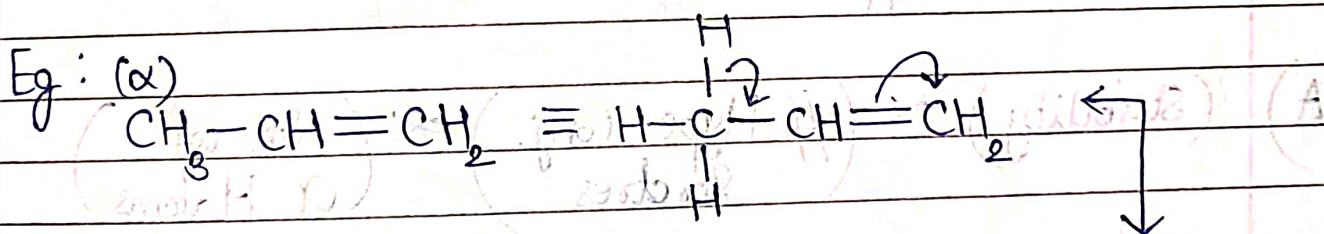 H
Eg : (α)
CH₃–CH=CH₂ ≡ H–C–CH=CH₂
H